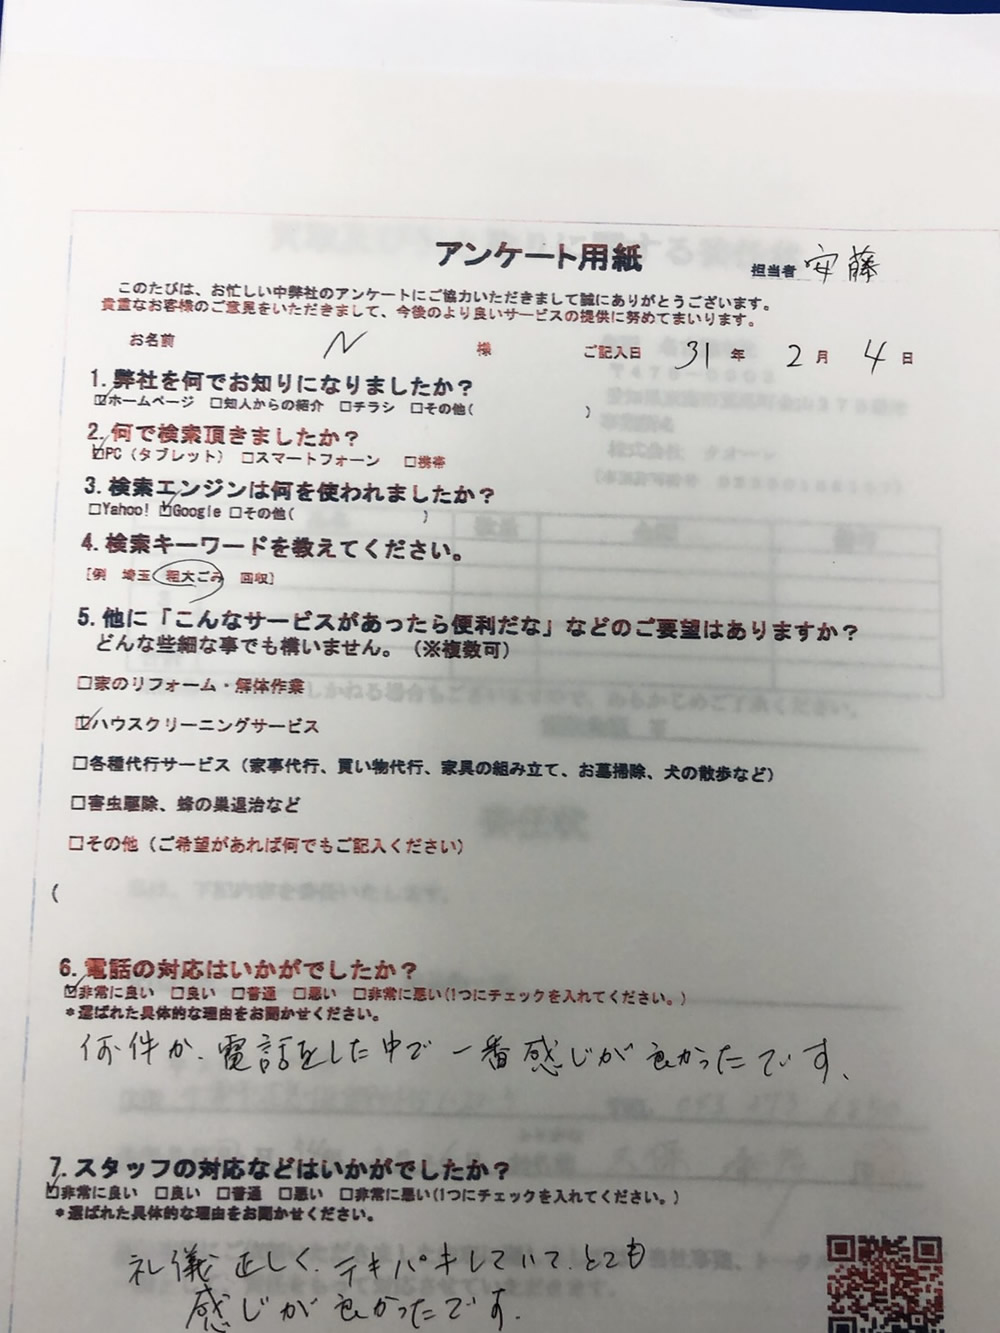 アンケート用紙
担当者 安藤
このたびは、お忙しい中弊社のアンケートにご協力いただきまして誠にありがとうございます。
貴重なお客様のご意見をいただきまして、今後のより良いサービスの提供に努めてまいります。
お名前 N 様 ご記入日 31年 2月 4日
1. 弊社を何でお知りになりましたか？
☑ホームページ □知人からの紹介 □チラシ □その他( )
2. 何で検索頂きましたか？
☑PC（タブレット） □スマートフォーン □携帯
3. 検索エンジンは何を使われましたか？
□Yahoo! ☑Google □その他( )
4. 検索キーワードを教えてください。
[例 埼玉 粗大ごみ 回収]
5. 他に「こんなサービスがあったら便利だな」などのご要望はありますか？
どんな些細な事でも構いません。（※複数可）
□家のリフォーム・解体作業
☑ハウスクリーニングサービス
□各種代行サービス（家事代行、買い物代行、家具の組み立て、お墓掃除、犬の散歩など）
□害虫駆除、蜂の巣退治など
□その他（ご希望があれば何でもご記入ください）
(
6. 電話の対応はいかがでしたか？
☑非常に良い □良い □普通 □悪い □非常に悪い(1つにチェックを入れてください。)
*選ばれた具体的な理由をお聞かせください。
何件か、電話をした中で一番感じが良かったです、
7. スタッフの対応などはいかがでしたか？
☑非常に良い □良い □普通 □悪い □非常に悪い(1つにチェックを入れてください。)
*選ばれた具体的な理由をお聞かせください。
礼儀正しく、テキパキしていて、とても
感じが良かったです。